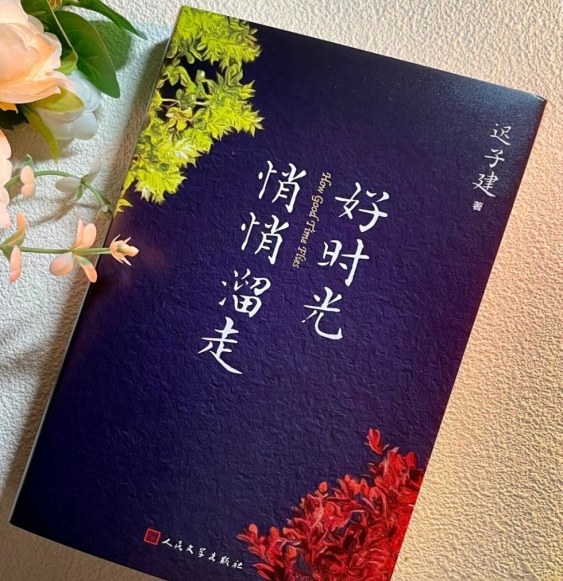 迟子建 著
好时光
How Good Time Flies
悄悄溜走
人民文学出版社